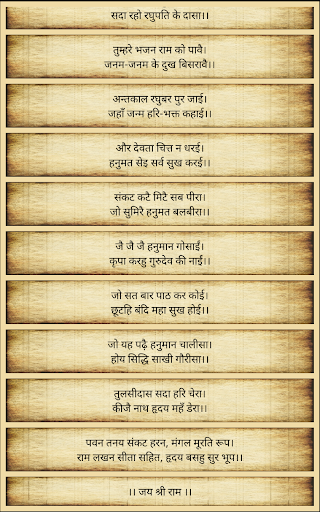 सदा रहो रघुपति के दासा।।
तुम्हरे भजन राम को पावै।
जनम-जनम के दुख बिसरावै।।
अन्तकाल रघुबर पुर जाई।
जहाँ जन्म हरि-भक्त कहाई।।
और देवता चित्त न धरई।
हनुमत सेइ सर्व सुख करई।।
संकट कटै मिटै सब पीरा।
जो सुमिरै हनुमत बलबीरा।।
जै जै जै हनुमान गोसाईं।
कृपा करहु गुरुदेव की नाईं।।
जो सत बार पाठ कर कोई।
छूटहि बंदि महा सुख होई।।
जो यह पढ़ै हनुमान चालीसा।
होय सिद्धि साखी गौरीसा।।
तुलसीदास सदा हरि चेरा।
कीजै नाथ हृदय महँ डेरा।।
पवन तनय संकट हरन, मंगल मूरति रूप।
राम लखन सीता सहित, हृदय बसहु सुर भूप।।
।। जय श्री राम ।।